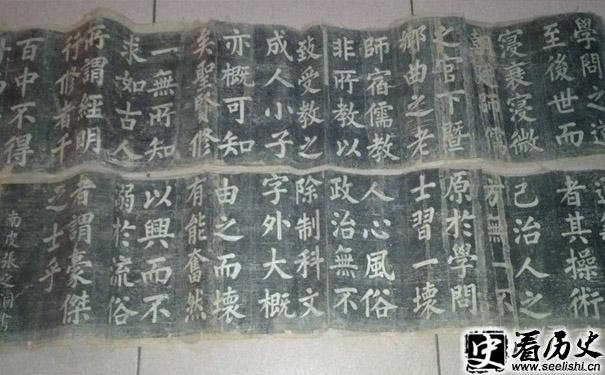 學問之
至後世而
寖衰寖微
朝廷師儒
之官下暨
鄉曲之老
師宿儒教
非所教以
致受教之
成人小子
亦概可知
矣聖賢修
一無所知
求如古人
所謂經明
行修者千
百中不得
者其操術
己治人之
方無一不
原於學問
士習一壞
人心風俗
政治無不
除制科文
字外大概
由之而壞
有能奮然
以興而不
溺於流俗
者謂豪傑
之士乎
南皮張之洞書
史 看历史
www.seelishi.cn